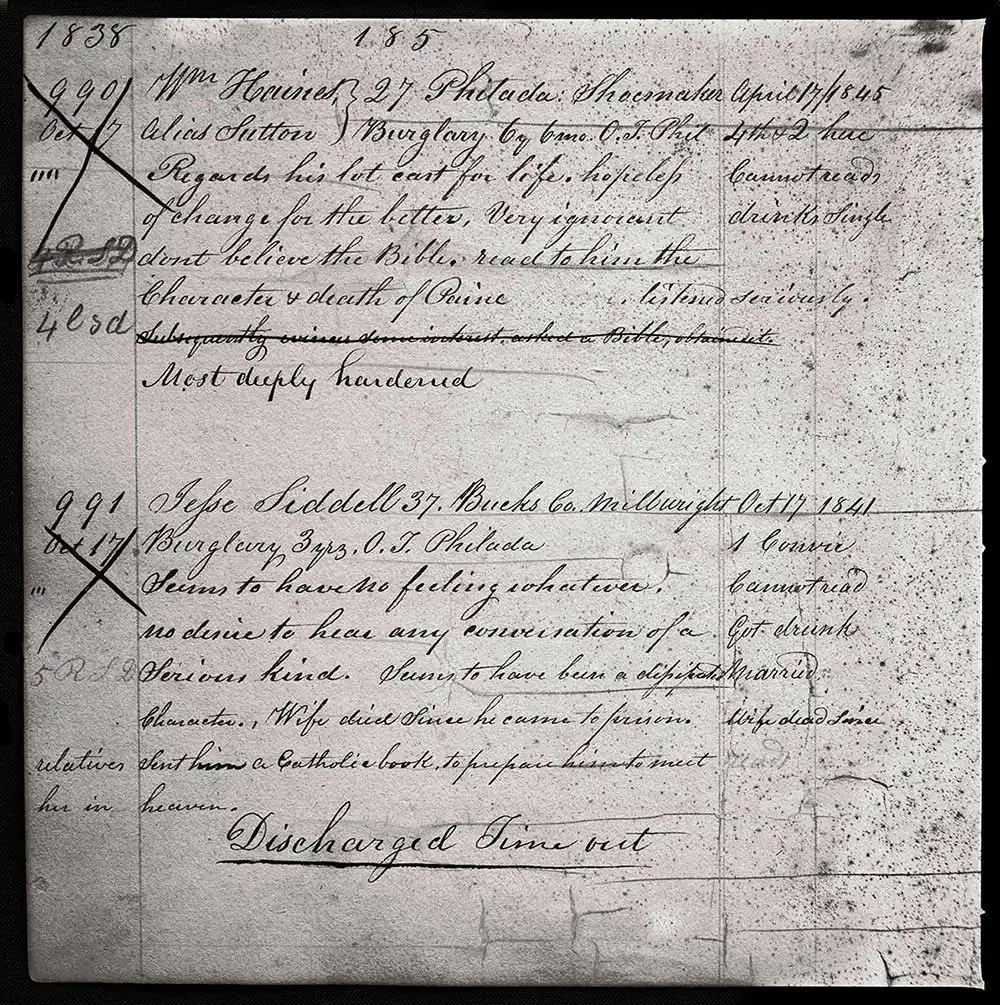 1838 185
990 Wm Haines, } 27 Philada: Shoemaker April 17/1845
Oct 17 alias Sutton } Burglary 6y 6mo. O.T. Phil 4th & 2 here
"" Regards his lot cast for life. hopeless Cannot read,
of change for the better, Very ignorant drinks Single
4 R.S.D dont believe the Bible. read to him the
Character & death of Paine listened seriously.
4 C s d Subsequently evinces some interest, asked a Bible, obtained it.
Most deeply hardened
991 Jesse Siddell 37. Bucks Co. Millwright Oct 17 1841
Oct 17 Burglary 3 yrs. O.T. Philada 1 Convic
"" Seems to have no feeling whatever. Cannot read
no desire to hear any conversation of a Got drunk
5 R S D Serious kind. Seems to have been a dissipated Married
Character., Wife died Since he came to prison. Wife dead Since
relatives Sent him a Catholic book, to prepare him to meet read
her in heaven.
Discharged Time out